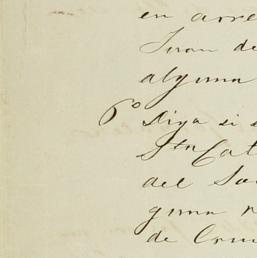 en arre
Juan de
alguna
6º Diga si s
Sta Cat
del So
guna
de Cru